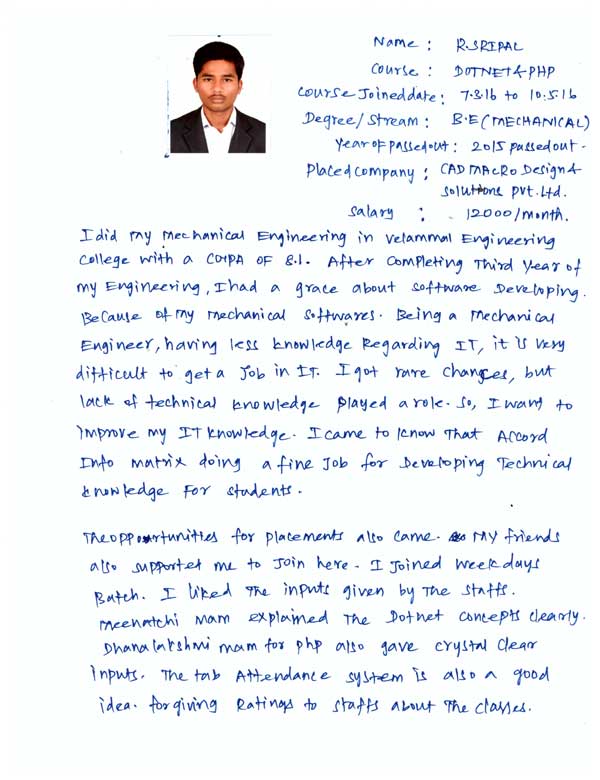 Name : R.SRIPAL
Course : DOTNET & PHP
Course Joined date : 7.3.16 to 10.5.16
Degree/Stream : B.E (MECHANICAL)
Year of Passed out : 2015 passed out -
Placed company : CAD MACRO Design &
Solutions Pvt. Ltd.
Salary : 12000/month.
I did my Mechanical Engineering in Velammal Engineering
College with a CGPA OF 8.1. After Completing Third Year of
my Engineering, I had a grace about software Developing.
Because of my mechanical Softwares. Being a Mechanical
Engineer, having less knowledge Regarding IT, it is very
difficult to get a Job in IT. I got rare changes, but
lack of technical knowledge played a role. So, I want to
improve my IT knowledge. I came to know That Accord
Info matrix doing a fine Job for Developing Technical
knowledge For students.
The opportunities for placements also came. My friends
also supportet me to Join here. I Joined Week days
Batch. I liked The inputs given by The staffs.
Meenatchi Mam explained The Dotnet concepts clearly.
Dhanalakshmi mam for php also gave crystal clear
inputs. The tab Attendance system is also a good
idea. for giving Ratings to staffs about The classes.